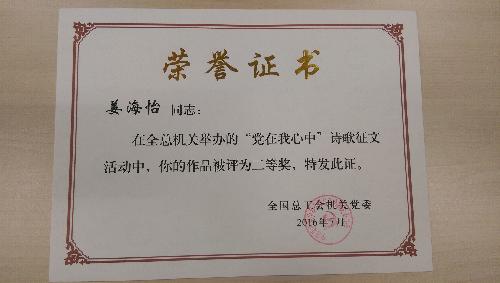 荣誉证书
姜海怡 同志：
在全总机关举办的“党在我心中”诗歌征文
活动中，你的作品被评为二等奖，特发此证。
全国总工会机关党委
2016年7月